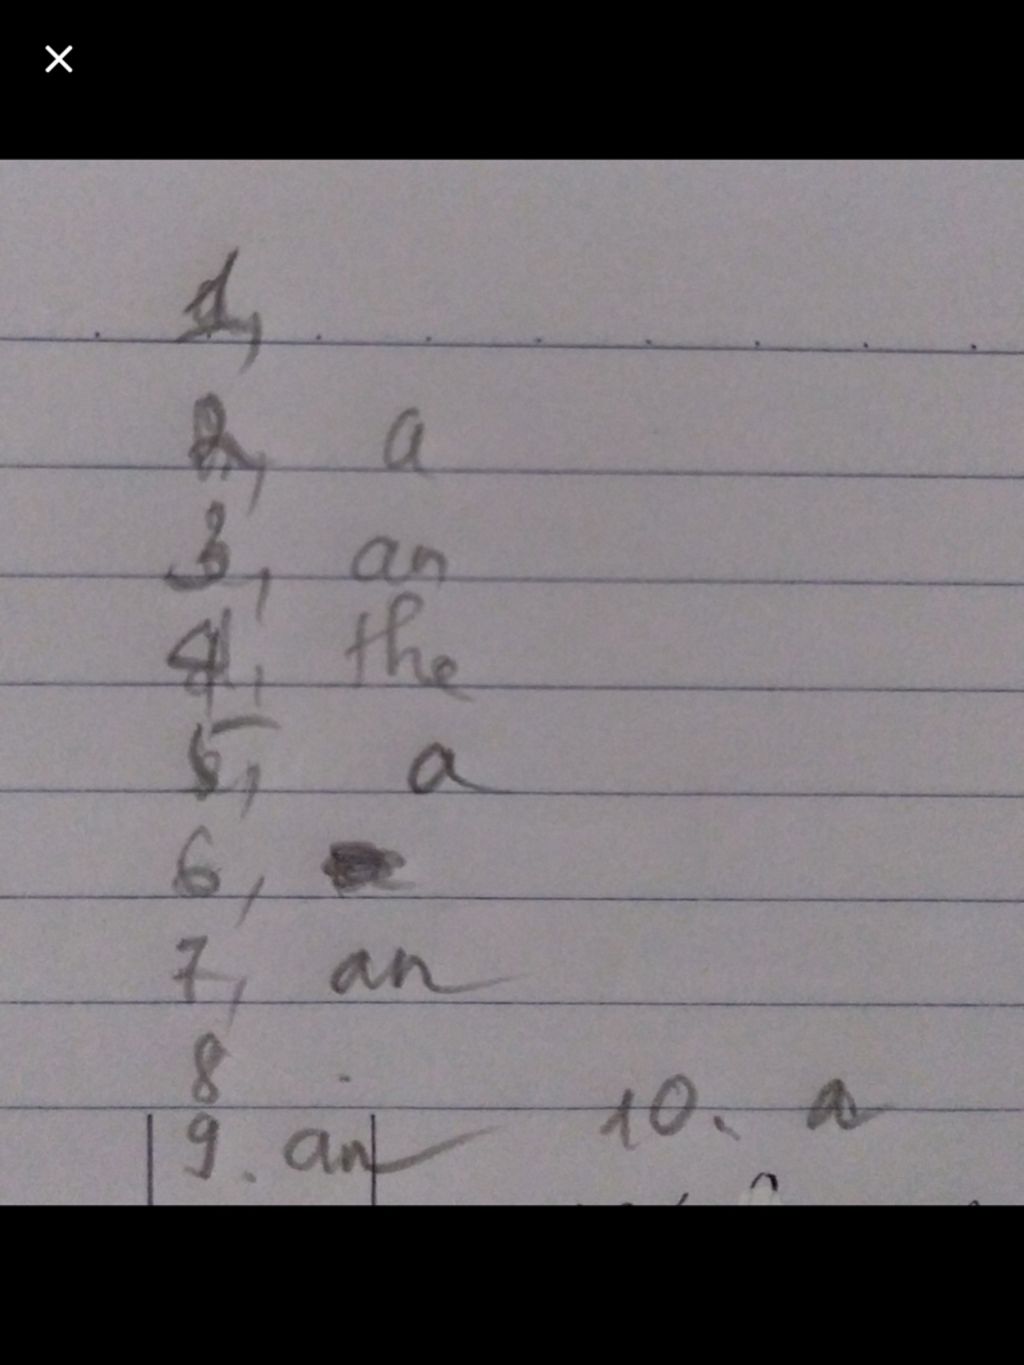 1,
2, a
3, an
4, the
5, a
6,
7, an
8 .
9. an 10. a